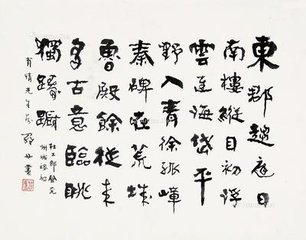 東郡趨庭日
南樓縱目初浮
雲連海岱平
野入青徐孤嶂
秦碑在荒城
魯殿餘從来
多古意臨眺
獨躊躇
杜工部登兗
州城樓
先生
書